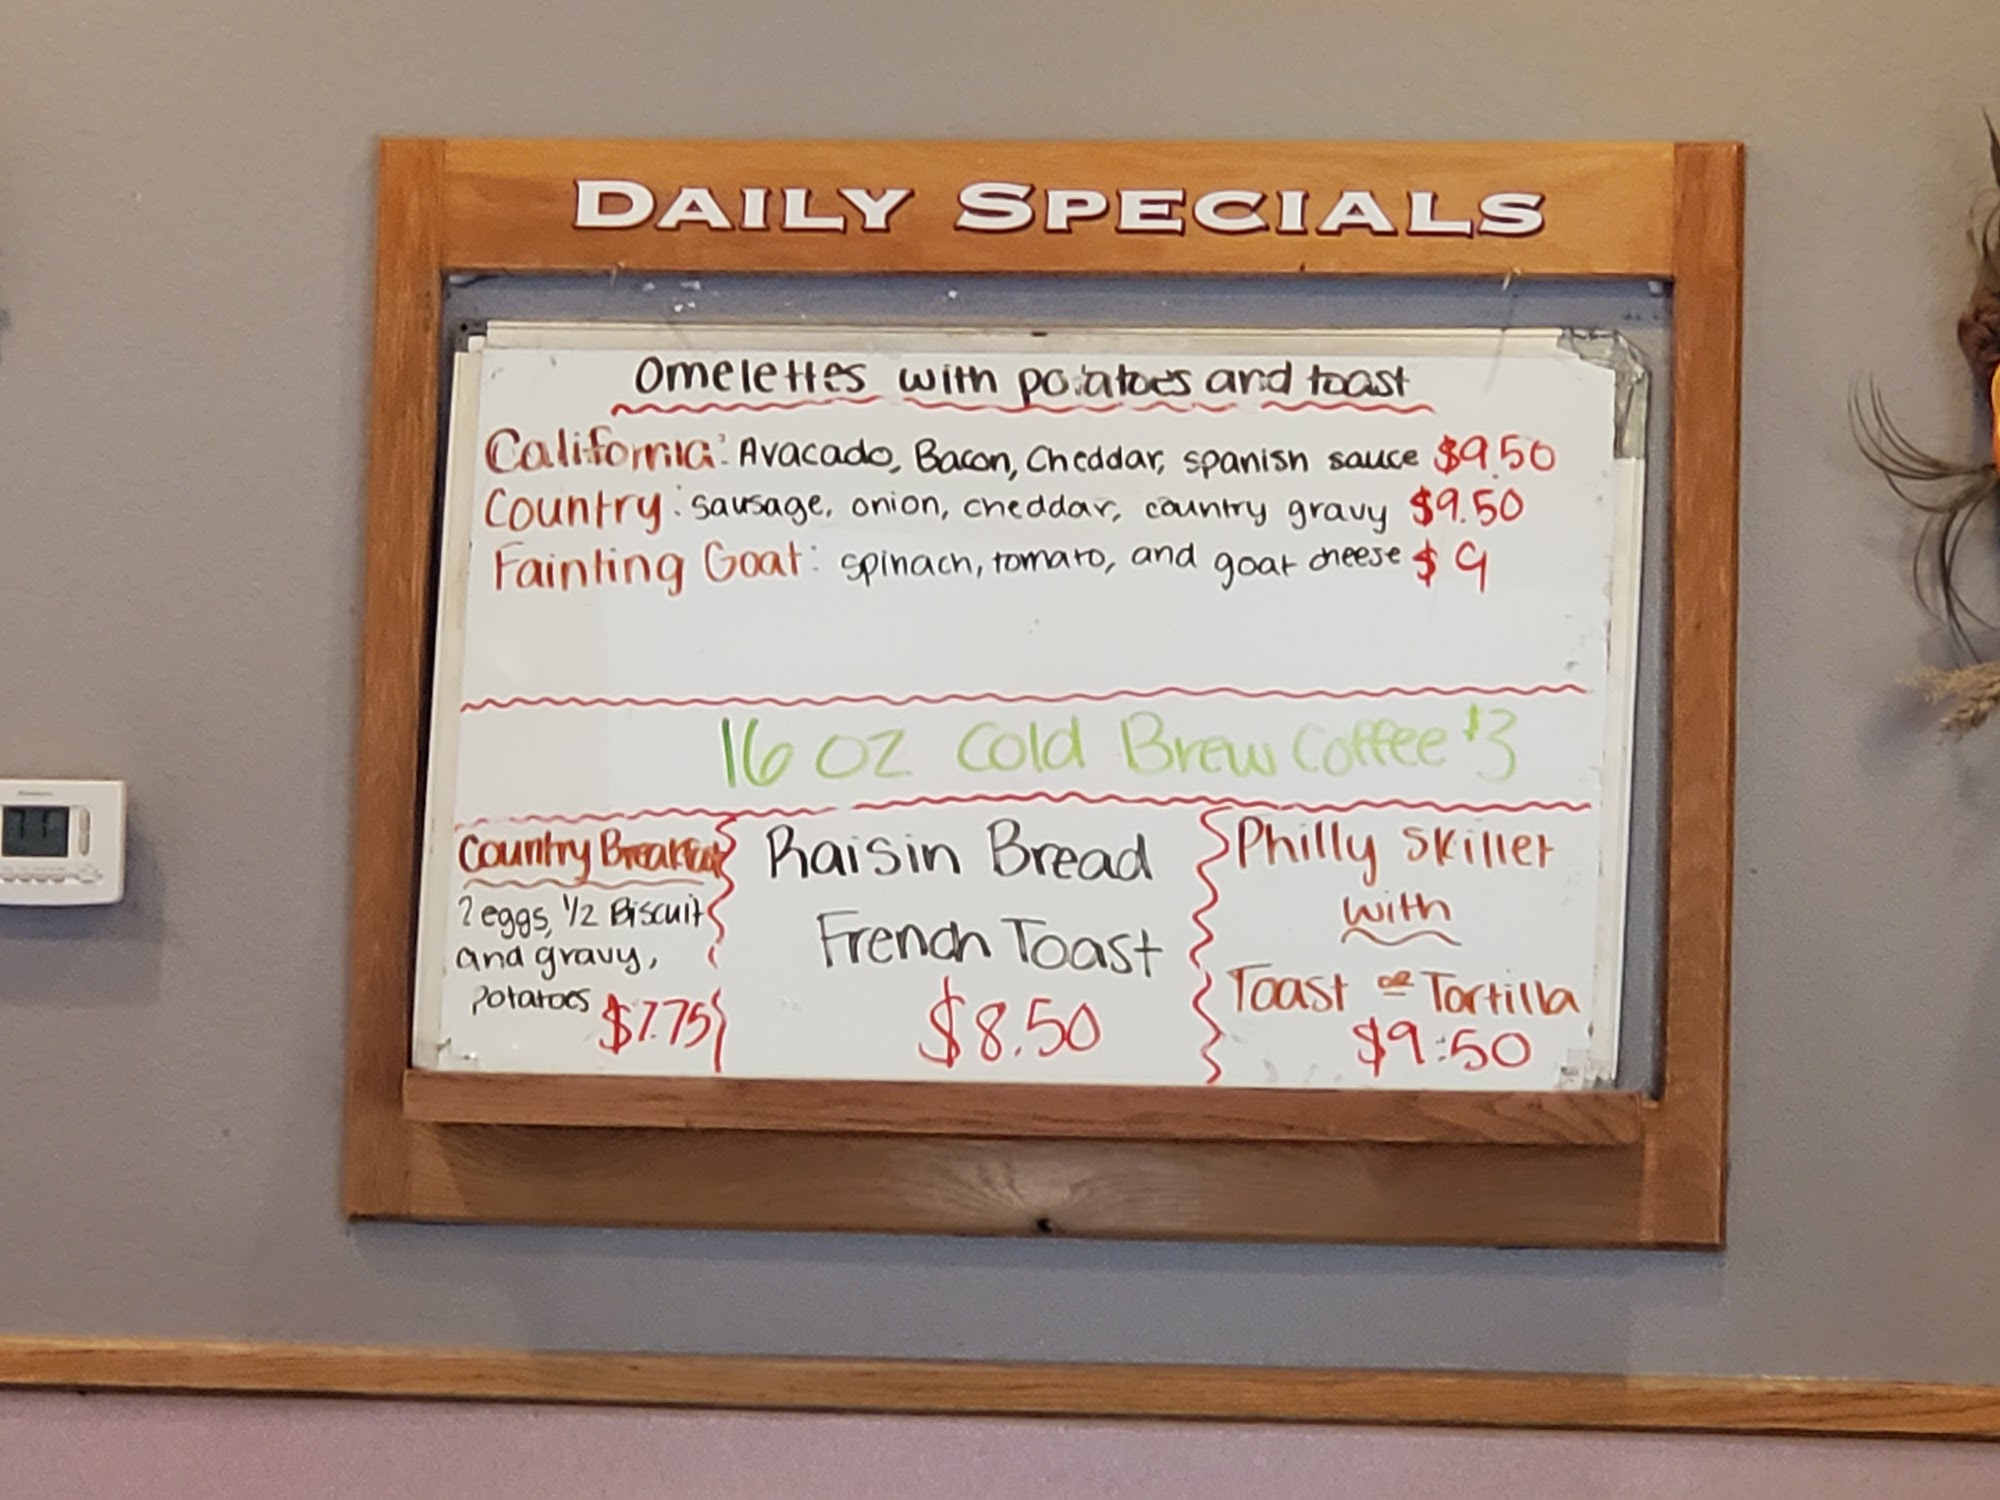 DAILY SPECIALS
Omelettes with potatoes and toast
California: Avacado, Bacon, Cheddar, spanish sauce $9.50
Country: sausage, onion, cheddar, country gravy $9.50
Fainting Goat: spinach, tomato, and goat cheese $9
16 oz Cold Brew Coffee $3
Country Breakfast
2 eggs, 1/2 Biscuit
and gravy,
potatoes $7.75
Raisin Bread
French Toast
$8.50
Philly Skillet
with
Toast or Tortilla
$9.50